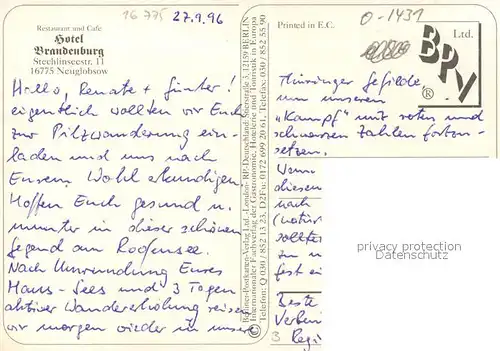 16 775
27.9.96
Restaurant und Cafe
Hotel
Brandenburg
Stechlinseestr. 11
16775 Neuglobsow
Hallo, Renate + Günter!
eigentlich wollten wir Euch
zur Pilzwanderung ein-
laden und uns nach
Eurem Wohl erkundigen.
Hoffen Euch gesund u.
munter in dieser schönen
Gegend am Roofensee.
Nach Umrundung Eures
Haus-Sees und 3 Tagen
aktiver Wandererholung reisen
wir morgen wieder in unsere
Berliner-Postkarten-Verlag Ltd.-London- RP-Deutschland: Stierstraße 3, 12159 BERLIN
Internationaler Fachverlag der Gastronomie, Hotelerie und Touristik in Europa
Telefon: Q 030 / 852 13 23, D2Fu: 0172 699 20 61, Telefax: 030 / 852 55 90
Printed in E.C.
O-1431
BPV
Ltd.
®
Thüringer Gefilde
um unseren
„Kampf" mit roten und
schwarzen Zahlen fortzu-
setzen.
Wenn
diesem
nach
(natür
sollte
zu
fest ei
Beste
Verbin
3 Regi
privacy protection
Datenschutz